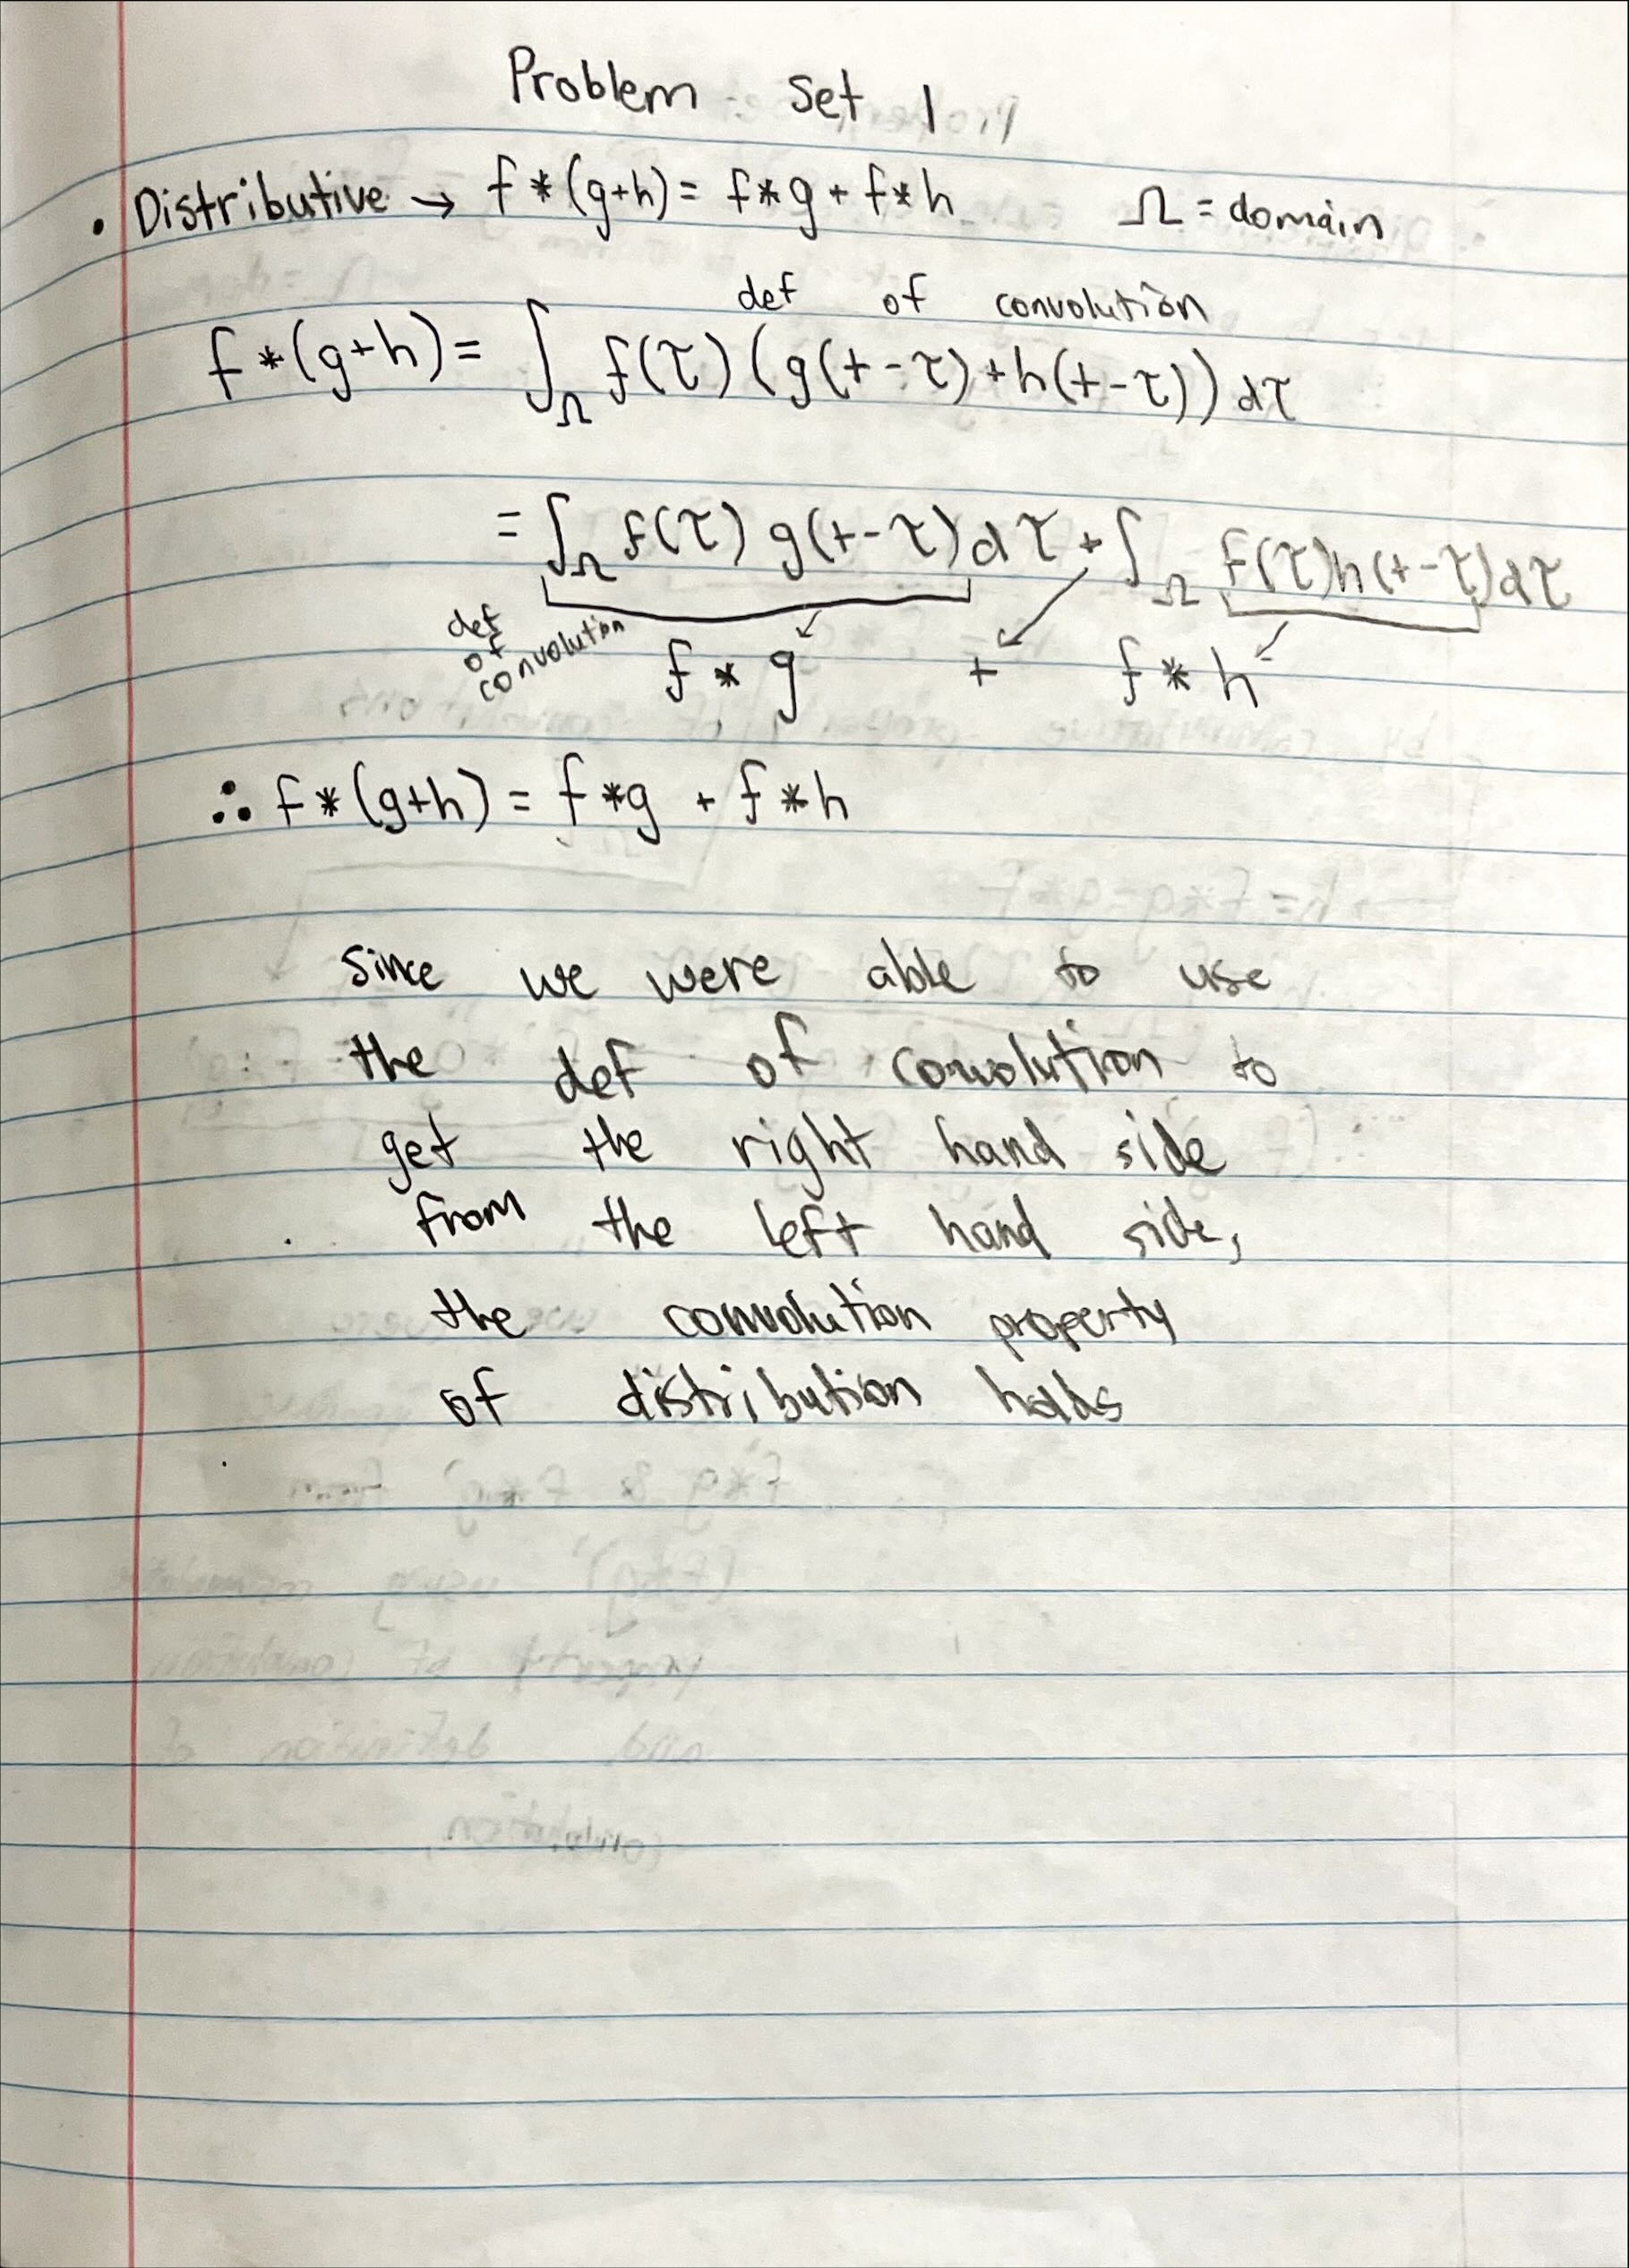 Problem Set 1
• Distributive → f * (g+h) = f*g + f*h Ω = domain
def of convolution
f * (g+h) = ∫_Ω f(τ) (g(t-τ) + h(t-τ)) dτ
= ∫_Ω f(τ) g(t-τ) dτ + ∫_Ω f(τ) h(t-τ) dτ
def
of
convolution
f * g + f * h
∴ f * (g+h) = f * g + f * h
Since we were able to use
the def of convolution to
get the right hand side
from the left hand side,
the convolution property
of distribution holds